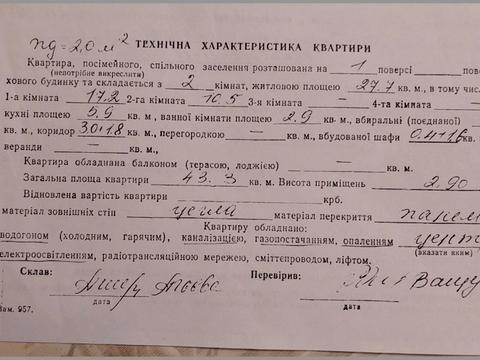 пд = 2,0 м²
ТЕХНІЧНА ХАРАКТЕРИСТИКА КВАРТИРИ
Квартира, посімейного, спільного заселення розташована на 1 поверсі
(непотрібне викреслити)
хового будинку та складається з 2 кімнат, житловою площею 27.7 кв. м., в тому числ
1-а кімната 17.2 2-га кімната 10.5 3-я кімната — 4-та кімната —
кухні площею 5.9 кв. м, ванної кімнати площею 2.9 кв. м, вбиральні (поєднаної)
кв. м, коридор 3.0+1.8 кв. м, перегородкою — кв. м, вбудованої шафи 0.4+1.6 кв.
веранди — кв. м.,
Квартира обладнана балконом (терасою, лоджією) — кв. м.
Загальна площа квартири 43.3 кв. м. Висота приміщень 2.90
Відновлена вартість квартири крб.
матеріал зовнішніх стін цегла матеріал перекриття
Квартиру обладнано:
водогоном (холодним, гарячим), каналізацією, газопостачанням, опаленням центр
(вказати яким)
електроосвітленням, радіотрансляційною мережею, сміттєпроводом, ліфтом.
Склав: Перевірив:
дата дата
Зам. 957.